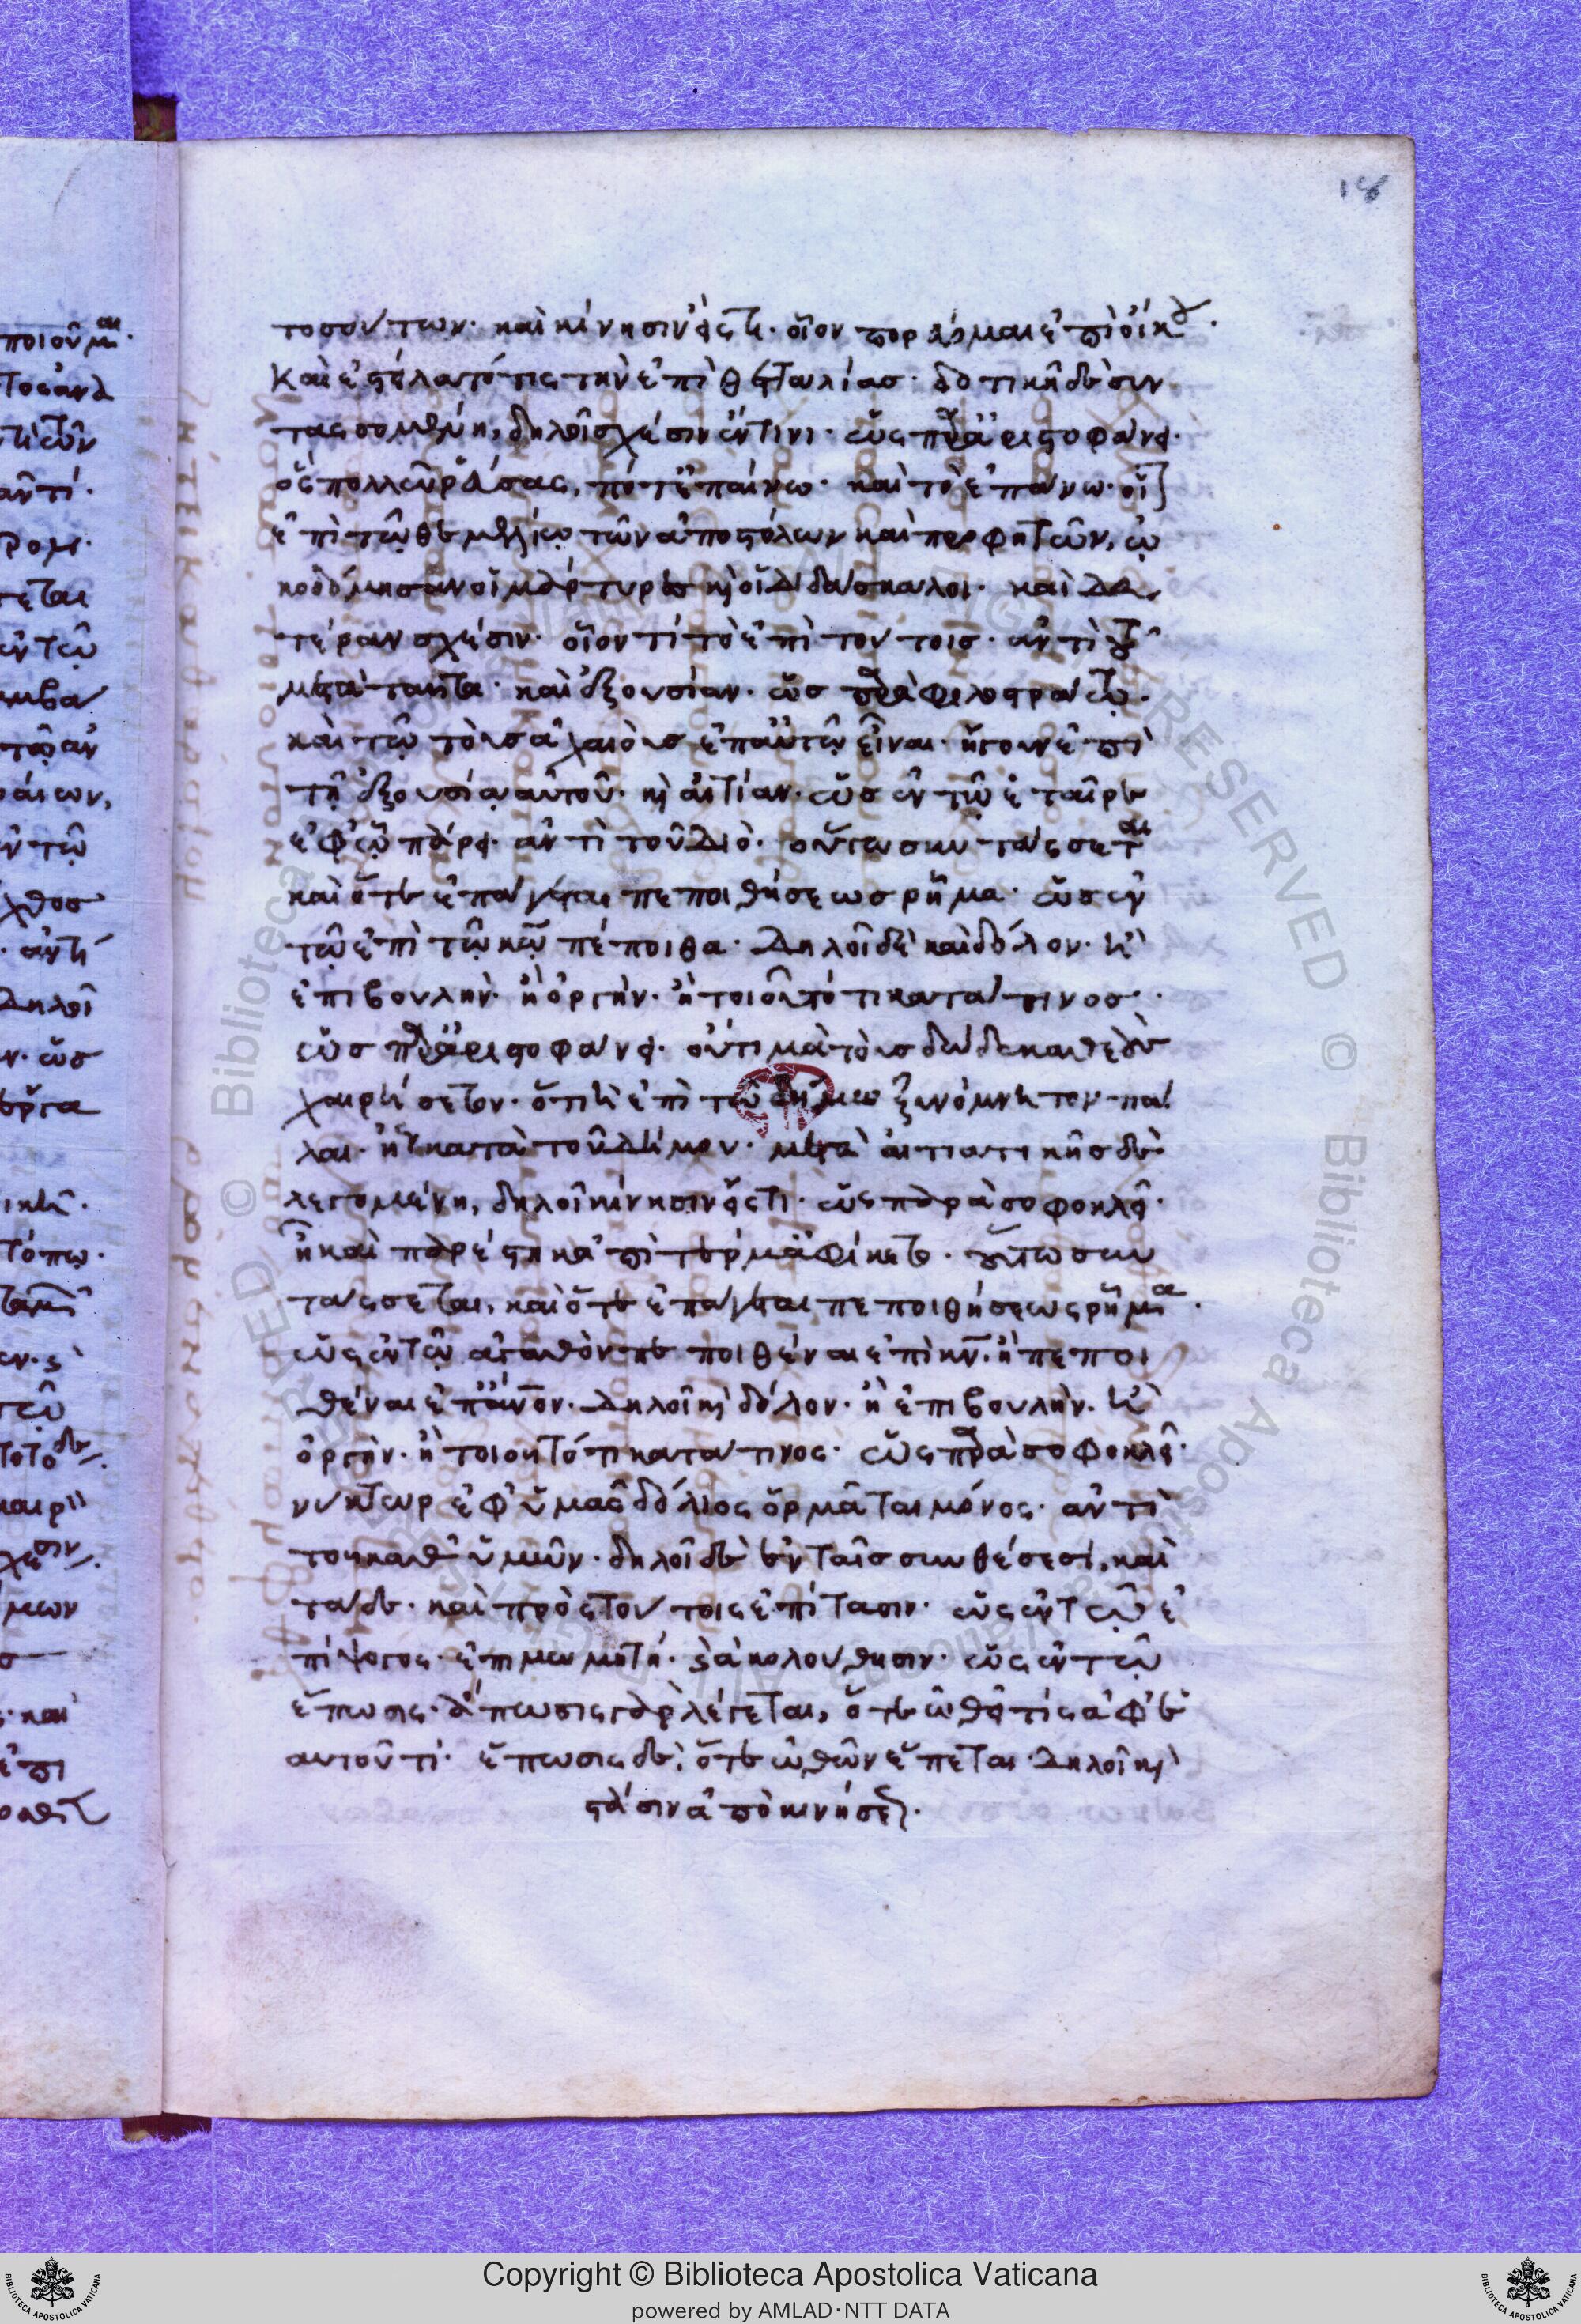 18
τοσούτων· καὶ κίνησιν εἴς τι· οἷον πορεύομαι ἐπὶ οἴκου·
καὶ ἐστείλατό τις τὴν ἐπὶ Θετταλίας· δοτικῇ δὲ συν
τασσομένη, δηλοῖ σχέσιν ἔν τινι· ὡς παρὰ ἀριστοφάνει·
τὸ ἐπάνω· καὶ τὸ ἐπάνω· οἷον
ἐπὶ τῷ θεμελίῳ τῶν ἀποστόλων καὶ προφητῶν, ᾠ
κοδόμησαν οἱ μάρτυρες καὶ οἱ διδάσκαλοι· καὶ δευ
τέραν σχέσιν· οἷον τί τὸ ἐπὶ τούτοις· ἀντὶ τοῦ
μετὰ ταῦτα· καὶ ἐξουσίαν· ὡς παρὰ φιλοστράτῳ·
καὶ τῷ τοὺς ἀχαιοὺς ἐπ' αὐτῷ εἶναι· ἤγουν ἐπὶ
τῇ ἐξουσίᾳ αὐτοῦ· καὶ αἰτίαν· ὡς ἐν τῷ ἑταῖρε
ἐφ' ᾧ πάρει· ἀντὶ τοῦ διό· οὕτω συντάσσεται
καὶ ὅτε ἐπάγεται πεποιθήσεως ῥῆμα· ὡς ἐν
τῷ ἐπὶ τῷ κῷ πέποιθα· δηλοῖ δὲ καὶ δόλον· ἢ
ἐπιβουλήν· ἢ ὀργήν· ἢ τοιοῦτό τι κατά τινος·
ὡς παρὰ ἀριστοφάνει· οὔτι μὰ τοὺς δώδεκα θεοὺς
χαιρήσετον· ὁτιὴ ἐπὶ τῷ δήμῳ ξυνόμνυτον πά
λαι· ἤγουν κατὰ τοῦ δήμου· μετὰ αἰτιατικῆς δὲ
λεγομένη, δηλοῖ κίνησιν εἴς τι· ὡς παρὰ σοφοκλεῖ·
ἢ καὶ παρέστη κἀπὶ τέρμ' ἀφίκετο· οὕτω συν
τάσσεται, καὶ ὅτε ἐπάγεται πεποιθήσεως ῥῆμα·
ὡς ἐν τῷ ἀγαθὸν πεποιθέναι ἐπὶ κν· ἢ πεποι
θέναι ἐπ' ἄνον· δηλοῖ καὶ δόλον· ἢ ἐπιβουλήν· ἢ
ὀργήν· ἢ τοιοῦτό τι κατά τινος· ὡς παρὰ σοφοκλεῖ·
νύκτωρ ἐφ' ὑμᾶς δόλιος ὁρμᾶται μόνος· ἀντὶ
τοῦ καθ' ὑμῶν· δηλοῖ δὲ ἐν ταῖς συνθέσεσι, καὶ
τάδε· καὶ πρὸς τούτοις ἐπίτασιν· ὡς ἐν τῷ ἐ
πίψογος· ἐπιμωμητή· καὶ ἀκολούθησιν· ὡς ἐν τῷ
ἔπωσις· ἄπωσις γὰρ λέγεται, ὅτε ὠθεῖ τις ἀφ' ἑ
αυτοῦ τι· ἔπωσις δὲ, ὅτε ὠθῶν ἕπεται· δηλοῖ καὶ
στάσιν ἀπὸ κινήσεως·
Copyright © Biblioteca Apostolica Vaticana
powered by AMLAD·NTT DATA